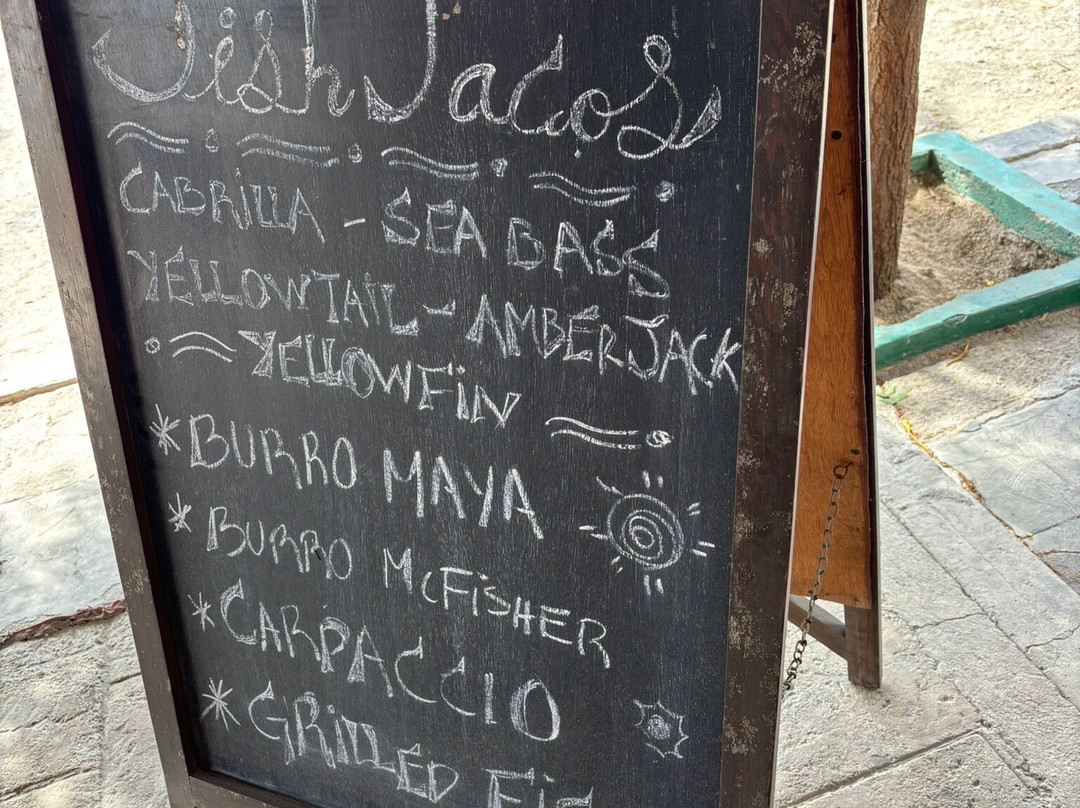 Fish Tacos
CABRILLA - SEA BASS
YELLOWTAIL - AMBERJACK
YELLOWFIN
* BURRO MAYA
* BURRO McFISHER
* CARPACCIO
* GRILLED